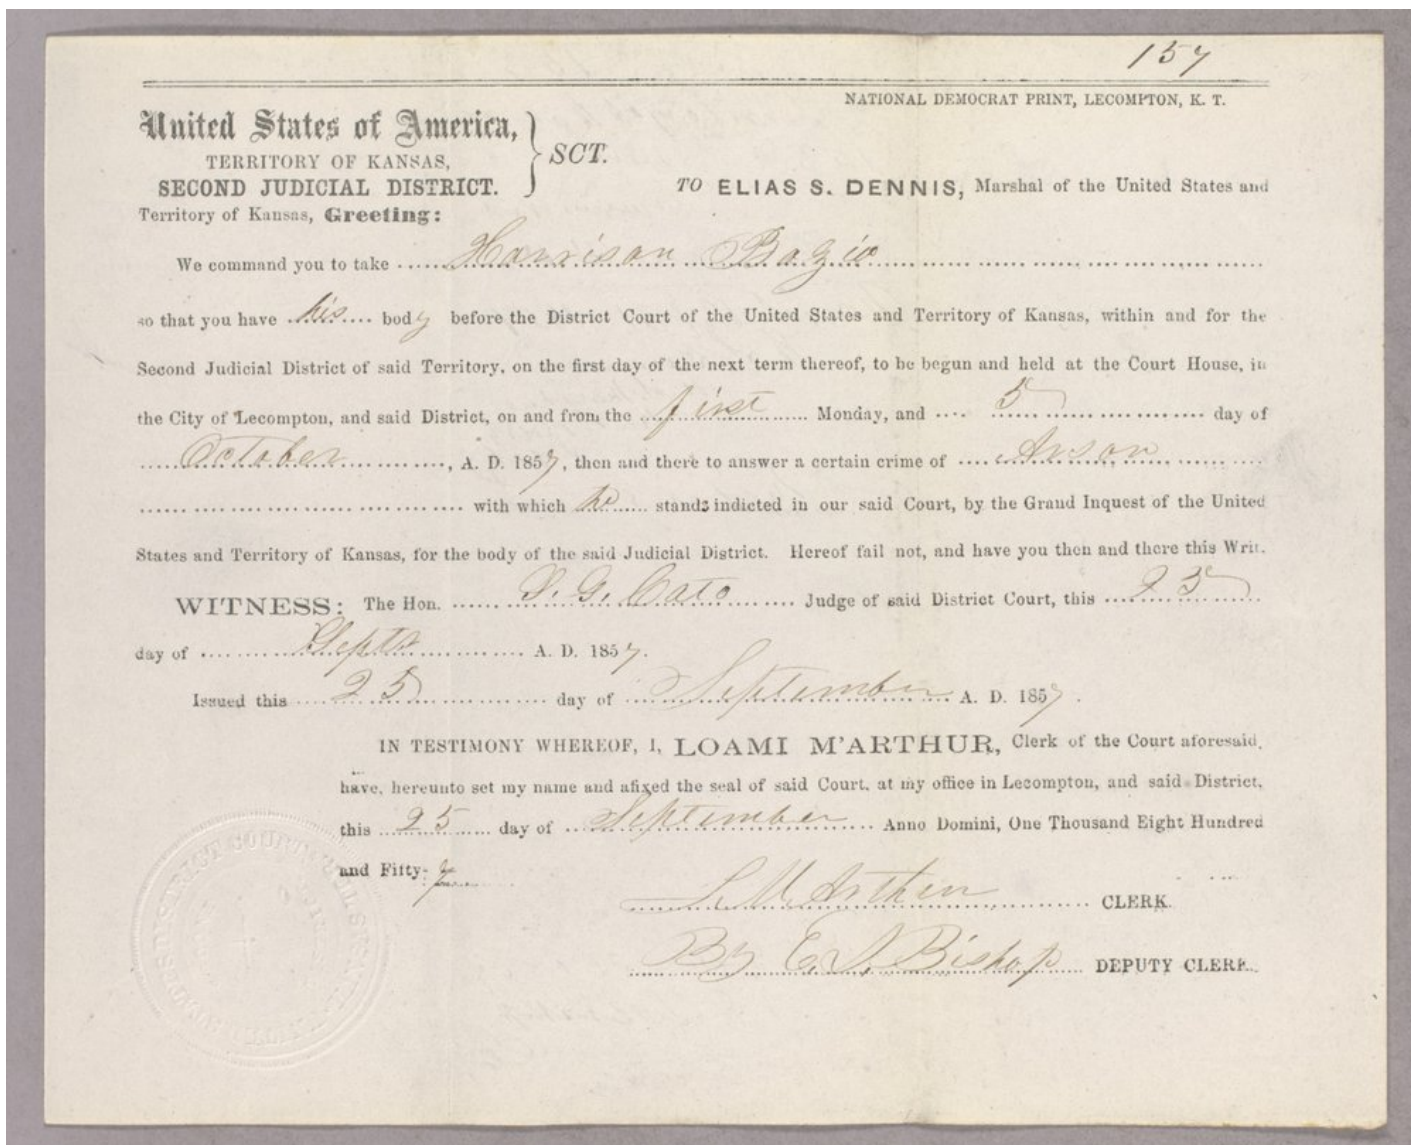 157
NATIONAL DEMOCRAT PRINT, LECOMPTON, K. T.
United States of America,
TERRITORY OF KANSAS,
SECOND JUDICIAL DISTRICT.
} SCT.
TO ELIAS S. DENNIS, Marshal of the United States and
Territory of Kansas, Greeting:
We command you to take Harrison Bagio
so that you have his body before the District Court of the United States and Territory of Kansas, within and for the
Second Judicial District of said Territory, on the first day of the next term thereof, to be begun and held at the Court House, in
the City of Lecompton, and said District, on and from the first Monday, and 5 day of
October, A. D. 1857, then and there to answer a certain crime of Arson
with which he stands indicted in our said Court, by the Grand Inquest of the United
States and Territory of Kansas, for the body of the said Judicial District. Hereof fail not, and have you then and there this Writ.
WITNESS: The Hon. S. G. Cato Judge of said District Court, this 25
day of Septr A. D. 1857.
Issued this 25 day of September A. D. 1857.
IN TESTIMONY WHEREOF, I, LOAMI M'ARTHUR, Clerk of the Court aforesaid,
have, hereunto set my name and afixed the seal of said Court, at my office in Lecompton, and said District,
this 25 day of September Anno Domini, One Thousand Eight Hundred
and Fifty-7
L. McArthur CLERK.
By C. S. Bishop DEPUTY CLERK.
DISTRICT COURT